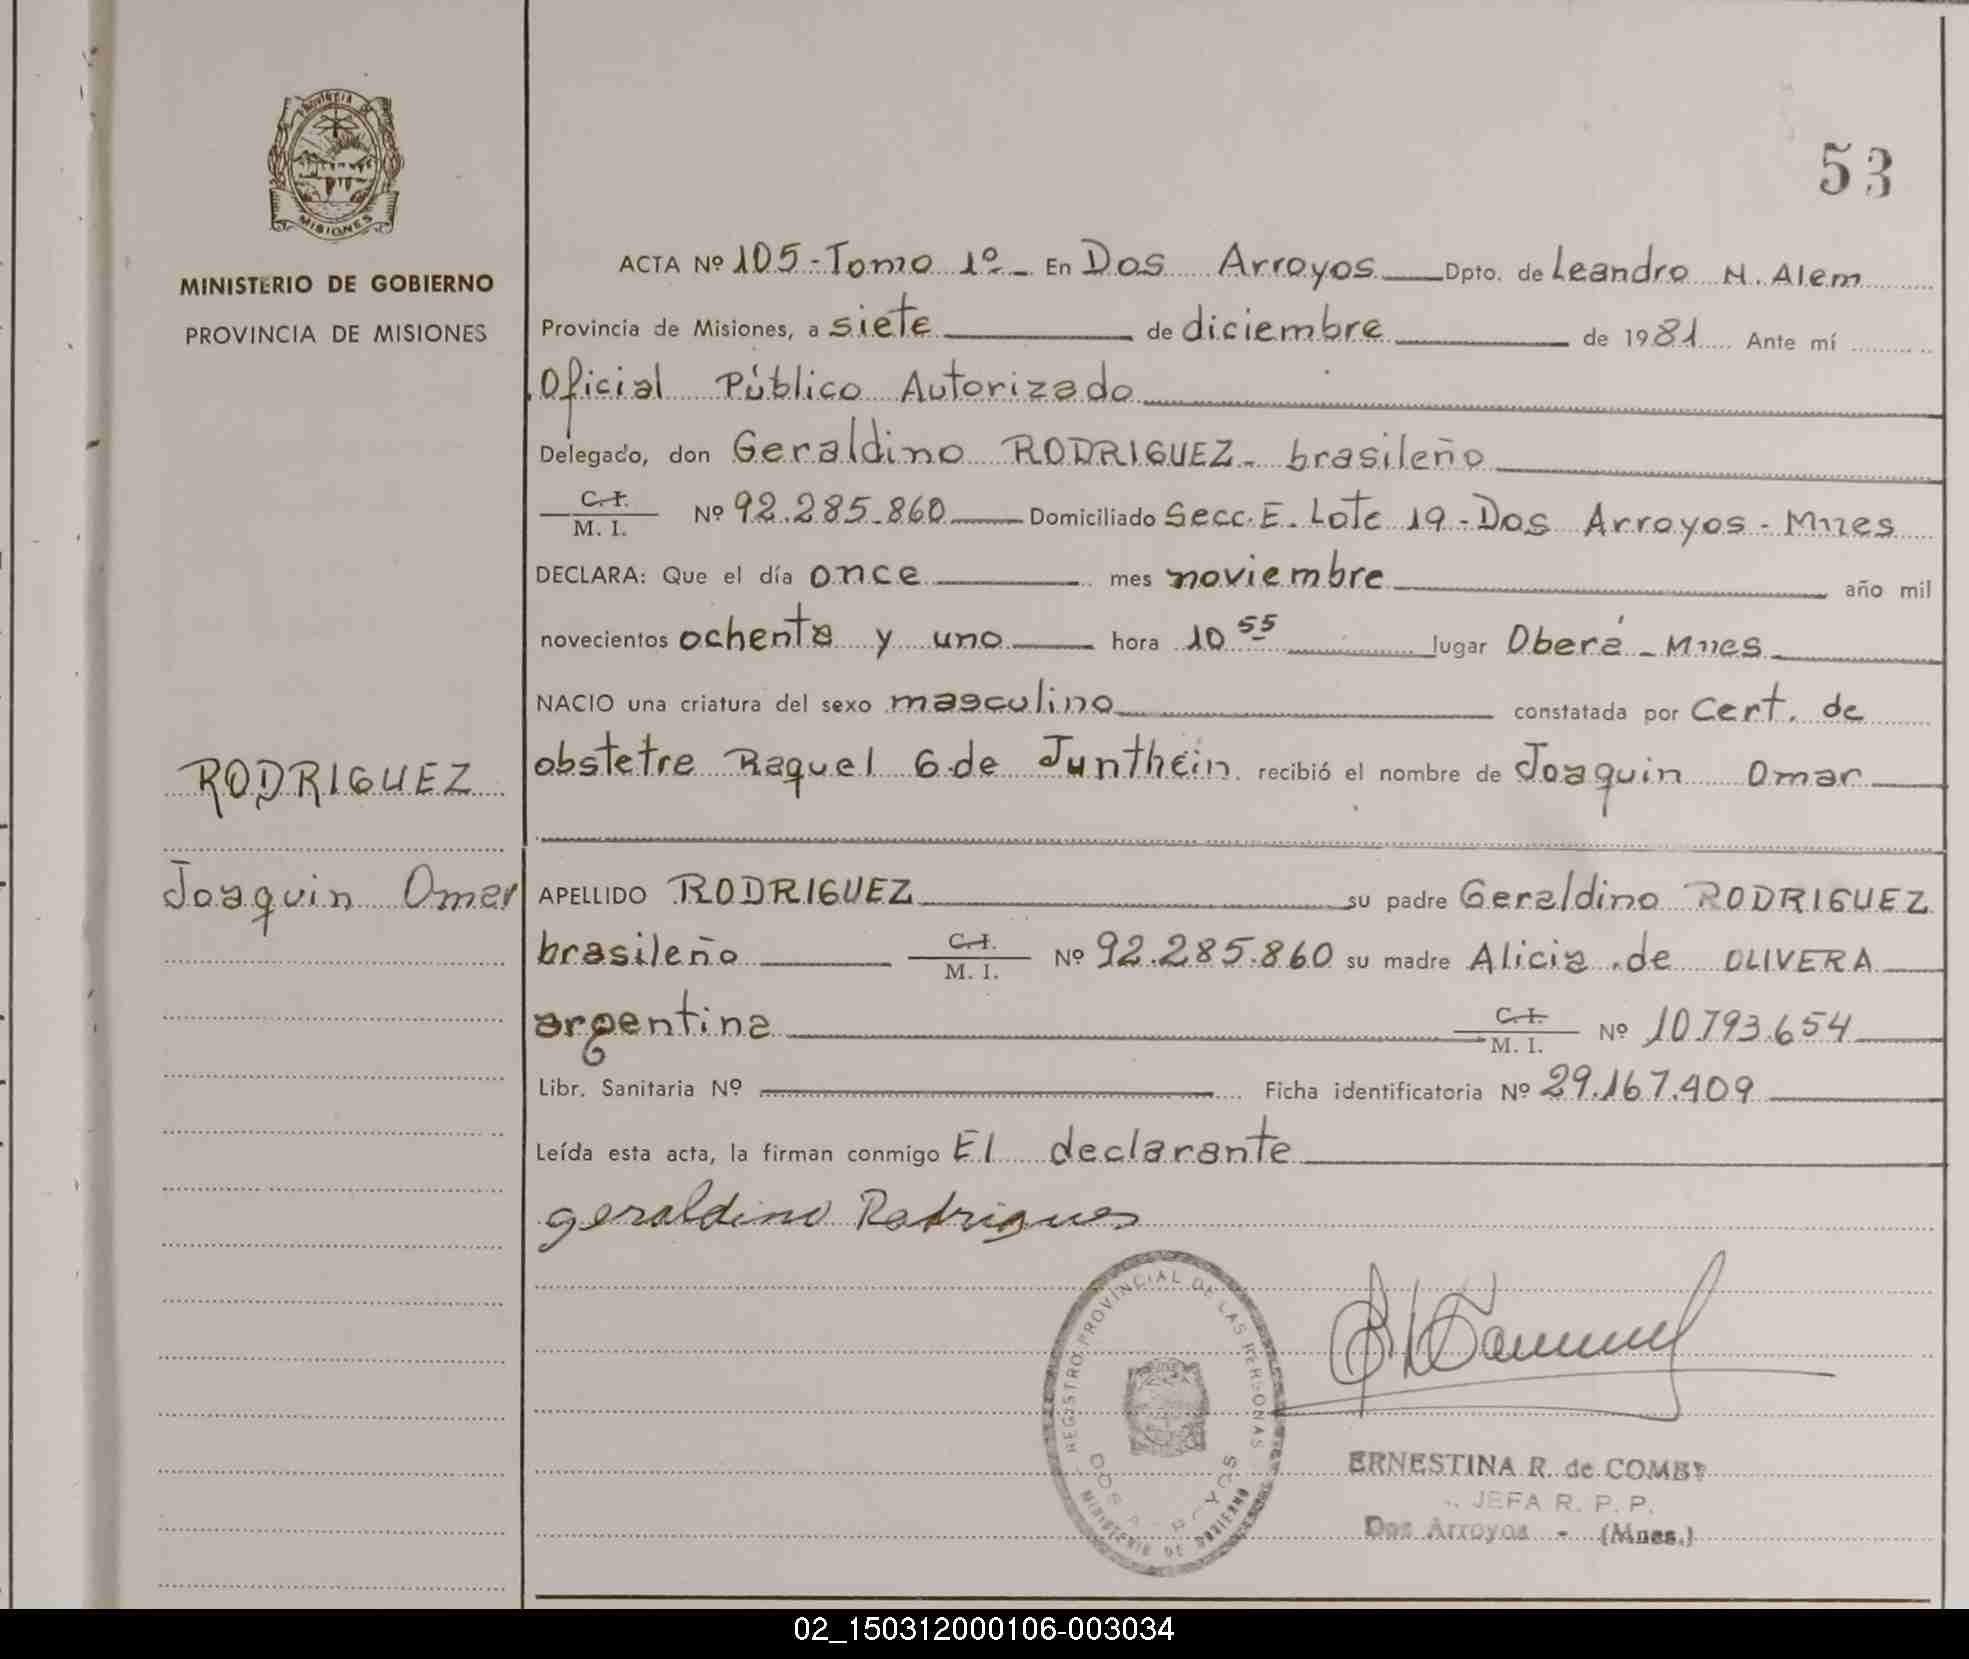 PROVINCIA DE
MISIONES
MINISTERIO DE GOBIERNO
PROVINCIA DE MISIONES
53
ACTA Nº 105-Tomo 1º- En Dos Arroyos Dpto. de Leandro N. Alem
Provincia de Misiones, a siete de diciembre de 1981 Ante mí
Oficial Público Autorizado
Delegado, don Geraldino RODRIGUEZ- brasileño
C.I.
M. I. Nº 92.285.860 Domiciliado Secc. E. Lote 19-Dos Arroyos - Mnes
DECLARA: Que el día once mes noviembre año mil
novecientos ochenta y uno hora 10 55 lugar Oberá - Mnes
NACIO una criatura del sexo masculino constatada por Cert. de
obstetre Raquel G. de Junthein recibió el nombre de Joaquin Omar
RODRIGUEZ
Joaquin Omar
APELLIDO RODRIGUEZ su padre Geraldino RODRIGUEZ
brasileño C.I. M. I. Nº 92.285.860 su madre Alicia de OLIVERA
argentina C.I. M. I. Nº 10.793.654
Libr. Sanitaria Nº Ficha identificatoria Nº 29.167.409
Leída esta acta, la firman conmigo El declarante
geraldino Rodrigues
REGISTRO PROVINCIAL DE LAS PERSONAS
DOS ARROYOS
MINISTERIO DE GOBIERNO
ERNESTINA R. de COMBY
JEFA R. P. P.
Dos Arroyos - (Mnes.)
02_150312000106-003034